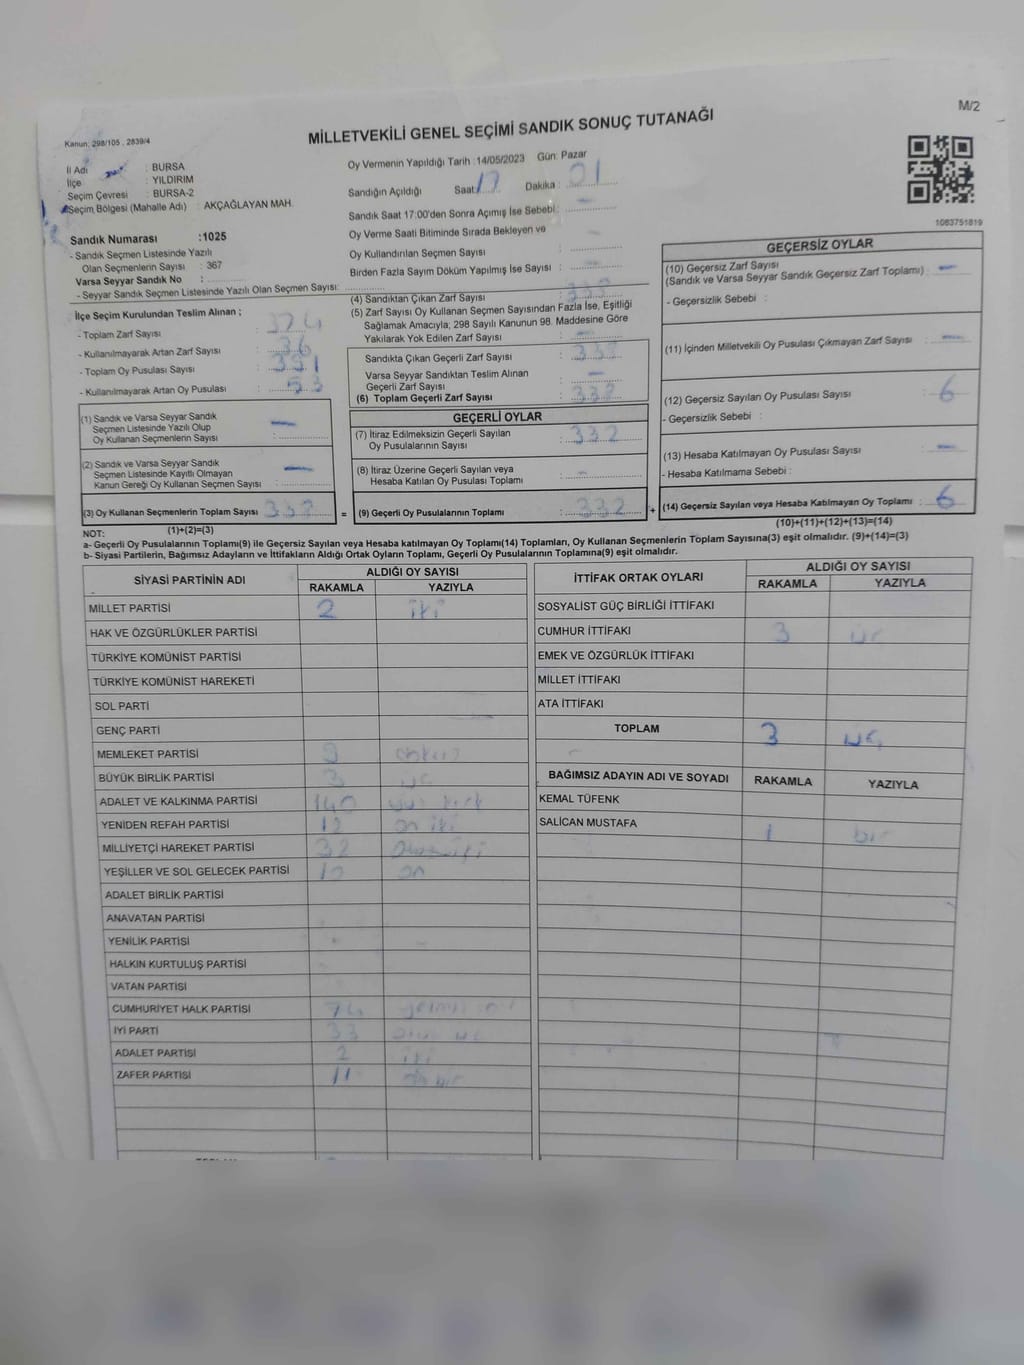 M/2
Kanun: 298/105 , 2839/4
MİLLETVEKİLİ GENEL SEÇİMİ SANDIK SONUÇ TUTANAĞI
İl Adı : BURSA
İlçe : YILDIRIM
Seçim Çevresi : BURSA-2
Seçim Bölgesi (Mahalle Adı) : AKÇAĞLAYAN MAH.
Sandık Numarası :1025
- Sandık Seçmen Listesinde Yazılı
Olan Seçmenlerin Sayısı : 367
Varsa Seyyar Sandık No :
- Seyyar Sandık Seçmen Listesinde Yazılı Olan Seçmen Sayısı:
Oy Vermenin Yapıldığı Tarih : 14/05/2023 Gün: Pazar
Sandığın Açıldığı Saat: 17 Dakika : 01
Sandık Saat 17:00'den Sonra Açımış İse Sebebi : –
Oy Verme Saati Bitiminde Sırada Bekleyen ve
Oy Kullandırılan Seçmen Sayısı : –
Birden Fazla Sayım Döküm Yapılmış İse Sayısı : –
1083751819
İlçe Seçim Kurulundan Teslim Alınan ;
- Toplam Zarf Sayısı : 374
- Kullanılmayarak Artan Zarf Sayısı : 36
- Toplam Oy Pusulası Sayısı : 391
- Kullanılmayarak Artan Oy Pusulası : 53
(1) Sandık ve Varsa Seyyar Sandık
Seçmen Listesinde Yazılı Olup
Oy Kullanan Seçmenlerin Sayısı : –
(2) Sandık ve Varsa Seyyar Sandık
Seçmen Listesinde Kayıtlı Olmayan
Kanun Gereği Oy Kullanan Seçmen Sayısı : –
(3) Oy Kullanan Seçmenlerin Toplam Sayısı :
(1)+(2)=(3)
(4) Sandıktan Çıkan Zarf Sayısı :
(5) Zarf Sayısı Oy Kullanan Seçmen Sayısından Fazla İse, Eşitliği
Sağlamak Amacıyla; 298 Sayılı Kanunun 98. Maddesine Göre
Yakılarak Yok Edilen Zarf Sayısı : –
Sandıkta Çıkan Geçerli Zarf Sayısı :
Varsa Seyyar Sandıktan Teslim Alınan
Geçerli Zarf Sayısı : –
(6) Toplam Geçerli Zarf Sayısı :
GEÇERLİ OYLAR
(7) İtiraz Edilmeksizin Geçerli Sayılan
Oy Pusulalarının Sayısı : 332
(8) İtiraz Üzerine Geçerli Sayılan veya
Hesaba Katılan Oy Pusulası Toplamı : –
= (9) Geçerli Oy Pusulalarının Toplamı : 332 +
GEÇERSİZ OYLAR
(10) Geçersiz Zarf Sayısı
(Sandık ve Varsa Seyyar Sandık Geçersiz Zarf Toplamı) : –
- Geçersizlik Sebebi :
(11) İçinden Milletvekili Oy Pusulası Çıkmayan Zarf Sayısı : –
(12) Geçersiz Sayılan Oy Pusulası Sayısı : 6
- Geçersizlik Sebebi :
(13) Hesaba Katılmayan Oy Pusulası Sayısı : –
- Hesaba Katılmama Sebebi :
(14) Geçersiz Sayılan veya Hesaba Katılmayan Oy Toplamı : 6
(10)+(11)+(12)+(13)=(14)
NOT:
a- Geçerli Oy Pusulalarının Toplamı(9) ile Geçersiz Sayılan veya Hesaba katılmayan Oy Toplamı(14) Toplamları, Oy Kullanan Seçmenlerin Toplam Sayısına(3) eşit olmalıdır. (9)+(14)=(3)
b- Siyasi Partilerin, Bağımsız Adayların ve İttifakların Aldığı Ortak Oyların Toplamı, Geçerli Oy Pusulalarının Toplamına(9) eşit olmalıdır.
SİYASİ PARTİNİN ADI ALDIĞI OY SAYISI
RAKAMLA YAZIYLA
MİLLET PARTİSİ 2 iki
HAK VE ÖZGÜRLÜKLER PARTİSİ
TÜRKİYE KOMÜNİST PARTİSİ
TÜRKİYE KOMÜNİST HAREKETİ
SOL PARTİ
GENÇ PARTİ
MEMLEKET PARTİSİ 9 dokuz
BÜYÜK BİRLİK PARTİSİ 3 üç
ADALET VE KALKINMA PARTİSİ 140 yüz kırk
YENİDEN REFAH PARTİSİ 12 on iki
MİLLİYETÇİ HAREKET PARTİSİ 32 otuz iki
YEŞİLLER VE SOL GELECEK PARTİSİ 10 on
ADALET BİRLİK PARTİSİ
ANAVATAN PARTİSİ
YENİLİK PARTİSİ
HALKIN KURTULUŞ PARTİSİ
VATAN PARTİSİ
CUMHURİYET HALK PARTİSİ 74
İYİ PARTİ 33 otuz üç
ADALET PARTİSİ 2 iki
ZAFER PARTİSİ 11 on bir
İTTİFAK ORTAK OYLARI ALDIĞI OY SAYISI
RAKAMLA YAZIYLA
SOSYALİST GÜÇ BİRLİĞİ İTTİFAKI
CUMHUR İTTİFAKI 3 üç
EMEK VE ÖZGÜRLÜK İTTİFAKI
MİLLET İTTİFAKI
ATA İTTİFAKI
TOPLAM 3 üç
BAĞIMSIZ ADAYIN ADI VE SOYADI RAKAMLA YAZIYLA
KEMAL TÜFENK
SALİCAN MUSTAFA 1 bir